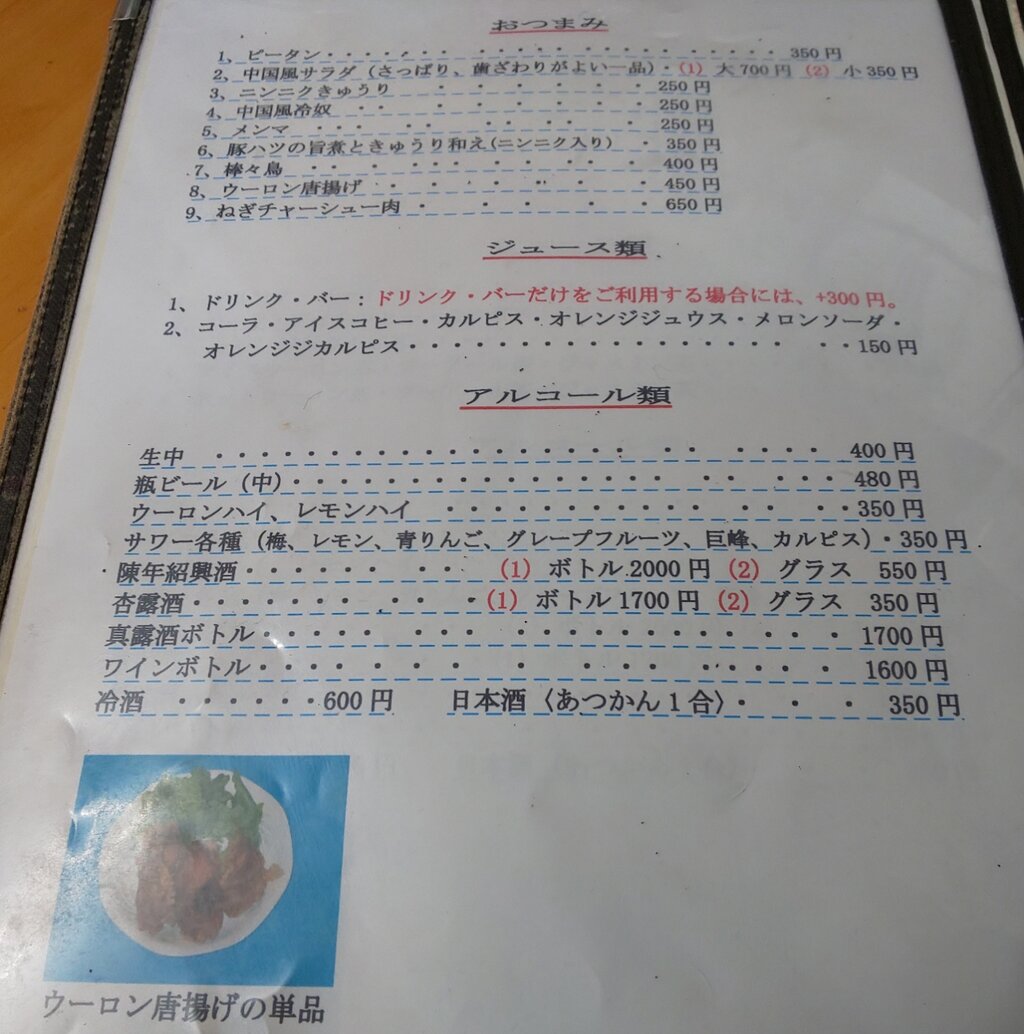 おつまみ
1、ピータン・・・・・・・・・・・・・・・・・・・・・350円
2、中国風サラダ（さっぱり、歯ざわりがよい一品）・（1）大700円（2）小350円
3、ニンニクきゅうり・・・・・・250円
4、中国風冷奴・・・・・・・250円
5、メンマ・・・・・・・・・・250円
6、豚ハツの旨煮ときゅうり和え（ニンニク入り）・350円
7、棒々鳥・・・・・・・・400円
8、ウーロン唐揚げ・・・・・・・450円
9、ねぎチャーシュー肉・・・・・650円
ジュース類
1、ドリンク・バー：ドリンク・バーだけをご利用する場合には、+300円。
2、コーラ・アイスコヒー・カルピス・オレンジジュウス・メロンソーダ・
オレンジジカルピス・・・・・・・・・・・・・・・・・・・150円
アルコール類
生中・・・・・・・・・・・・・・・・・・・・・・400円
瓶ビール（中）・・・・・・・・・・・・・・・・・・・・・・480円
ウーロンハイ、レモンハイ・・・・・・・・・・・・・・・350円
サワー各種（梅、レモン、青りんご、グレープフルーツ、巨峰、カルピス）・350円
陳年紹興酒・・・・・・・・・（1）ボトル2000円（2）グラス 550円
杏露酒・・・・・・・・・・（1）ボトル1700円（2）グラス 350円
真露酒ボトル・・・・・・・・・・・・・・・・・・・・・1700円
ワインボトル・・・・・・・・・・・・・・・・・・・1600円
冷酒・・・・・・600円 日本酒〈あつかん1合〉・・・350円
ウーロン唐揚げの単品